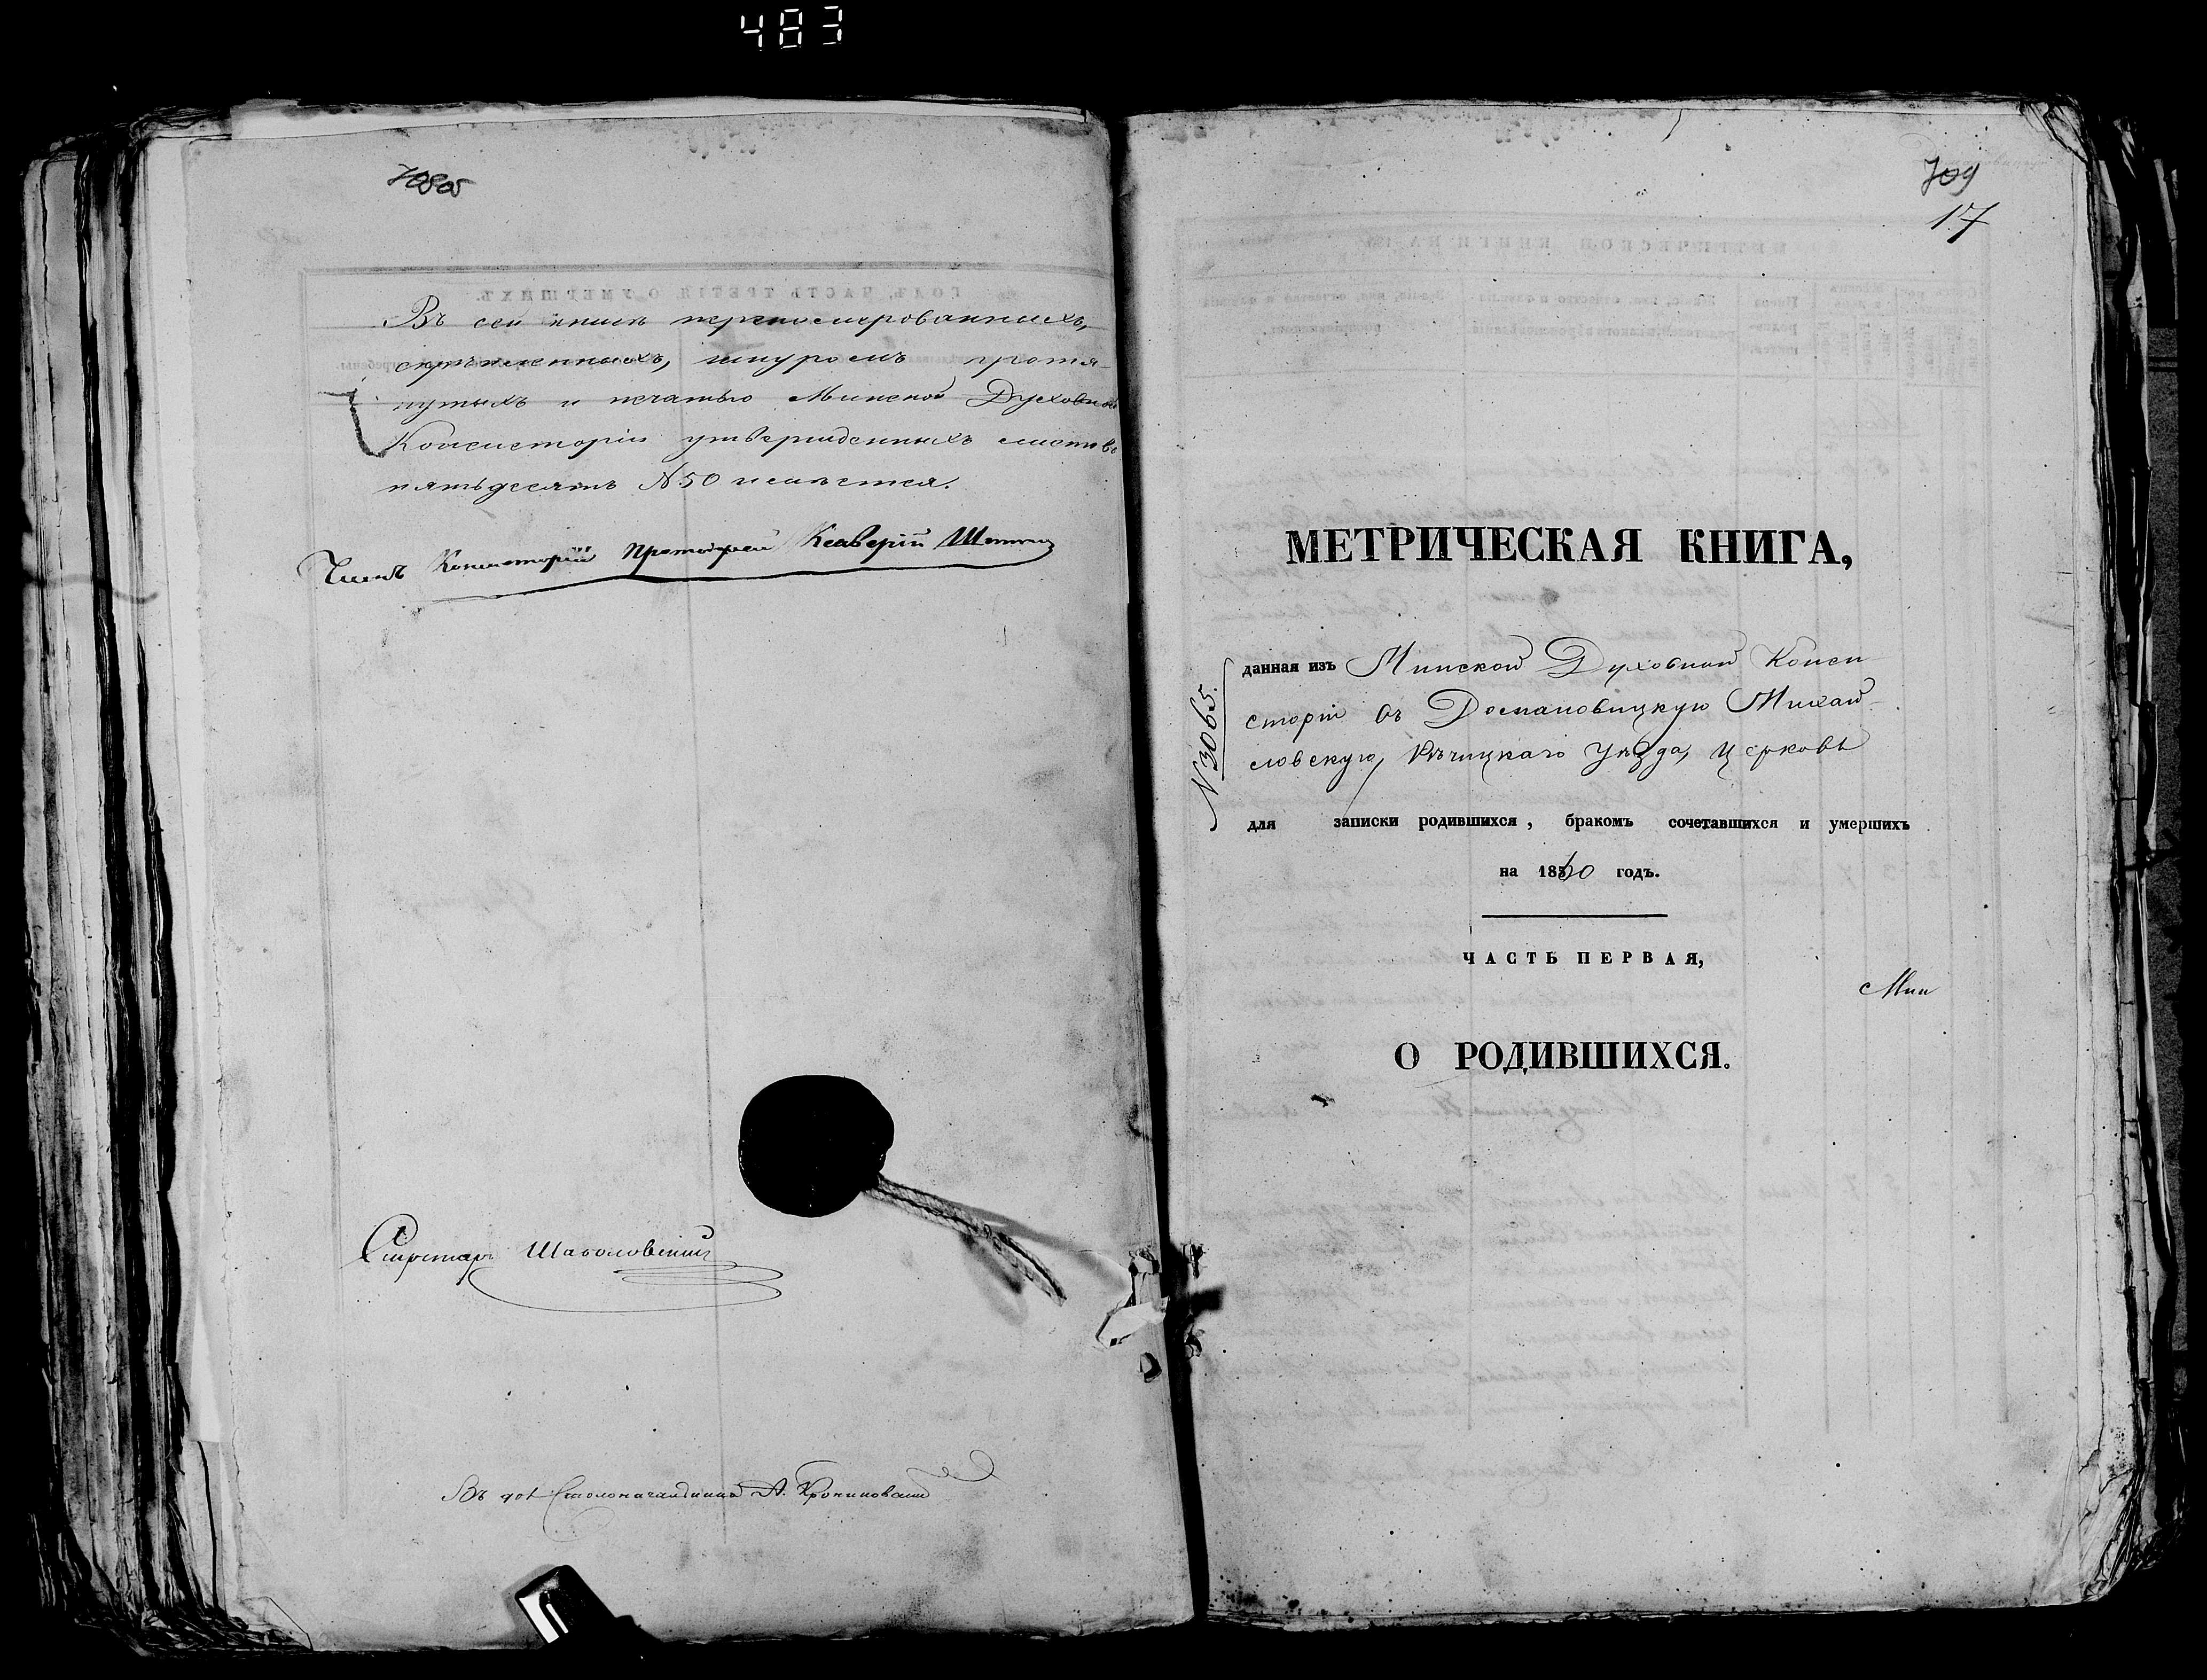 483
708об
Въ сей книгѣ перенумерованныхъ,
скрѣпленныхъ, шнуромъ протя-
нутыхъ и печатью Минской Духовной
Консисторіи утвержденныхъ листовъ
пятьдесятъ №50 имѣется.
Членъ Консисторіи Протоіерей Ксаверій
Секретарь Шаболовскій
Въ дол Столоначальника А.
709
17
МЕТРИЧЕСКАЯ КНИГА,
№3065.
данная изъ Минской Духовной Конси
сторіи въ Домановицкую Михай-
ловскую, Рѣчицкаго Уѣзда, Церковь
для записки родившихся, бракомъ сочетавшихся и умершихъ
на 1860 годъ.
ЧАСТЬ ПЕРВАЯ,
Мин
О РОДИВШИХСЯ.